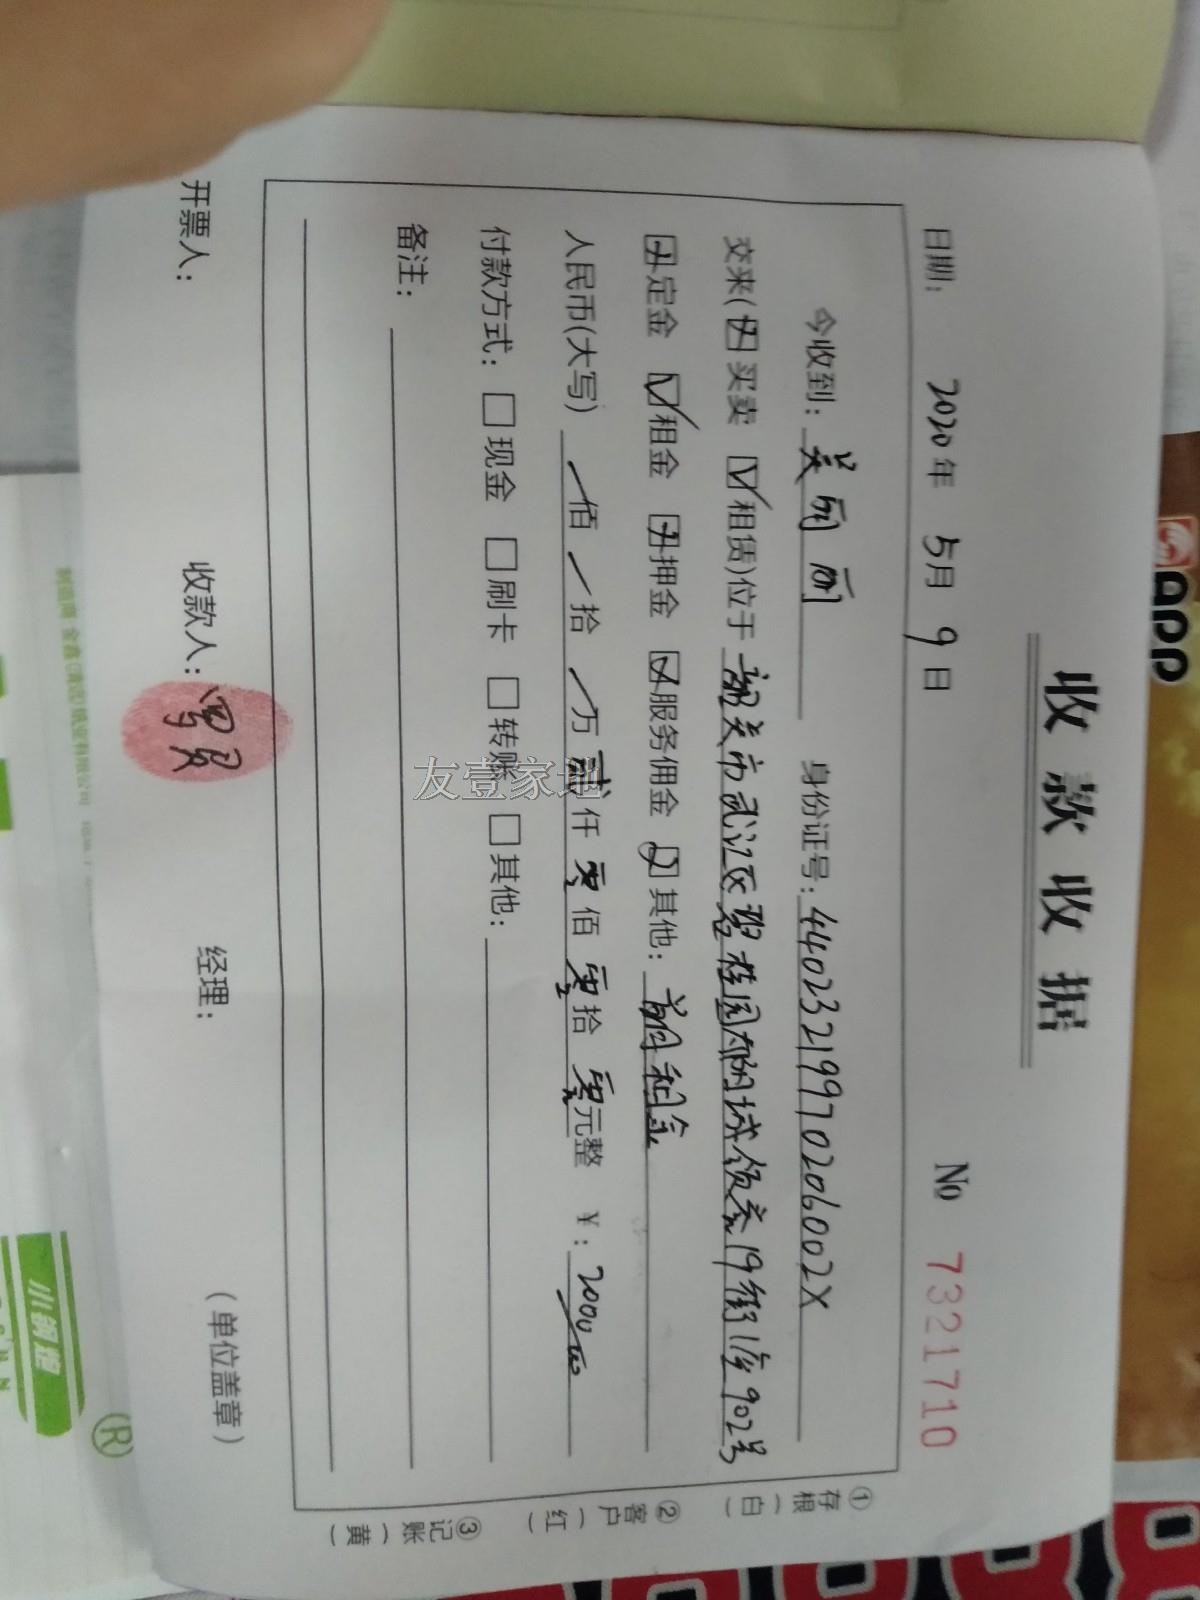 收款收据
№ 7321710
日期： 2020年 5月 9日
今收到： 身份证号：44023219970206002X
交来(☑买卖 ☑租赁)位于韶关市武江区碧桂园 19街1座902号
定金 ☑租金 押金 服务佣金 其他： 租金
人民币(大写) 佰 拾 万 贰仟 零佰 零拾 零元整 ￥：2000
付款方式： □现金 □刷卡 □转账 □其他：
备注：
开票人： 收款人： 经理： (单位盖章)
①存根(白)
②客户(红)
③记账(黄)
友壹家地
APP
小钢炮
®